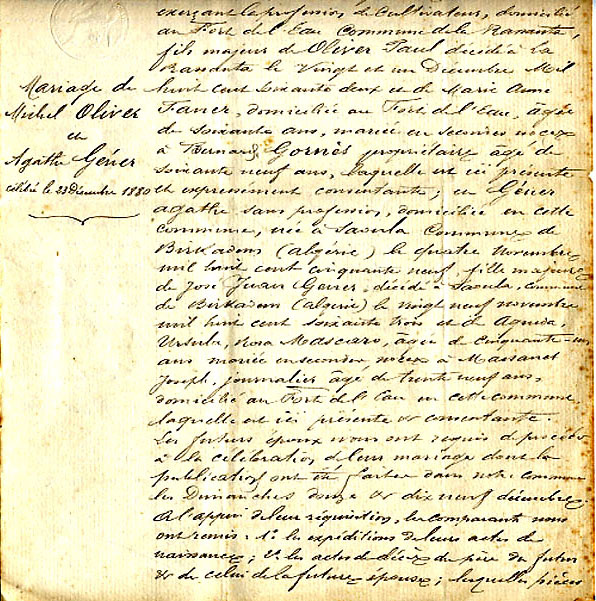 Mariage de
Michel Oliver
et
Agathe Géner
célébré le 23 Décembre 1880
exerçant la profession de Cultivateur, domicilié
au Fort de l'Eau Commune de la Rassauta,
fils majeur de Oliver Paul décédé à La
Rassauta le Vingt et un Décembre Mil
huit cent soixante deux et de Marie Anne
Faner, domiciliée au Fort de l'Eau, âgée
de soixante ans, mariée en secondes noces
à Bernard Gornès propriétaire âgé de
soixante neuf ans, laquelle est ici présente
et expressément consentante; et Géner
agathe sans profession, domiciliée en cette
commune, née à Saoula Commune de
Birkadem (algérie) le quatre Novembre
mil huit cent cinquante neuf, fille majeure
de José Juan Gener, décédé à Saoula, commune
de Birkadem (algérie) le vingt neuf novembre
mil huit cent soixante trois et de Agueda,
Ursula, Rosa Mascaro, âgée de Cinquante-un
ans mariée en secondes noces à Massanet
Joseph, journalier âgé de trente neuf ans,
domicilié au Fort de l'Eau en cette commune,
laquelle est ici présente & consentante.
Les futurs époux nous ont requis de procéder
à la célébration de leur mariage dont les
publications ont été faites dans notre commune
les Dimanches douze & dix neuf décembre,
A l'appui de leur réquisition, les comparants nous
ont remis: 1° les expéditions de leurs actes de
naissance; 2° les actes de décès du père du futur
& de celui de la future épouse; lesquelles pièces